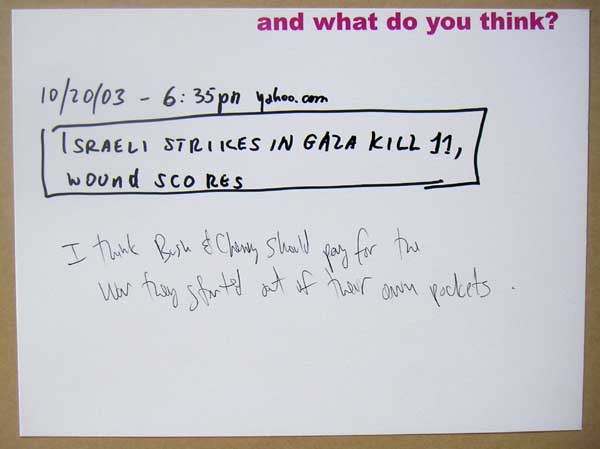 and what do you think?
10/20/03 - 6:35pm yahoo.com
ISRAELI STRIKES IN GAZA KILL 11,
WOUND SCORES
I think Bush & Cheney should pay for the
war they started out of their own pockets.